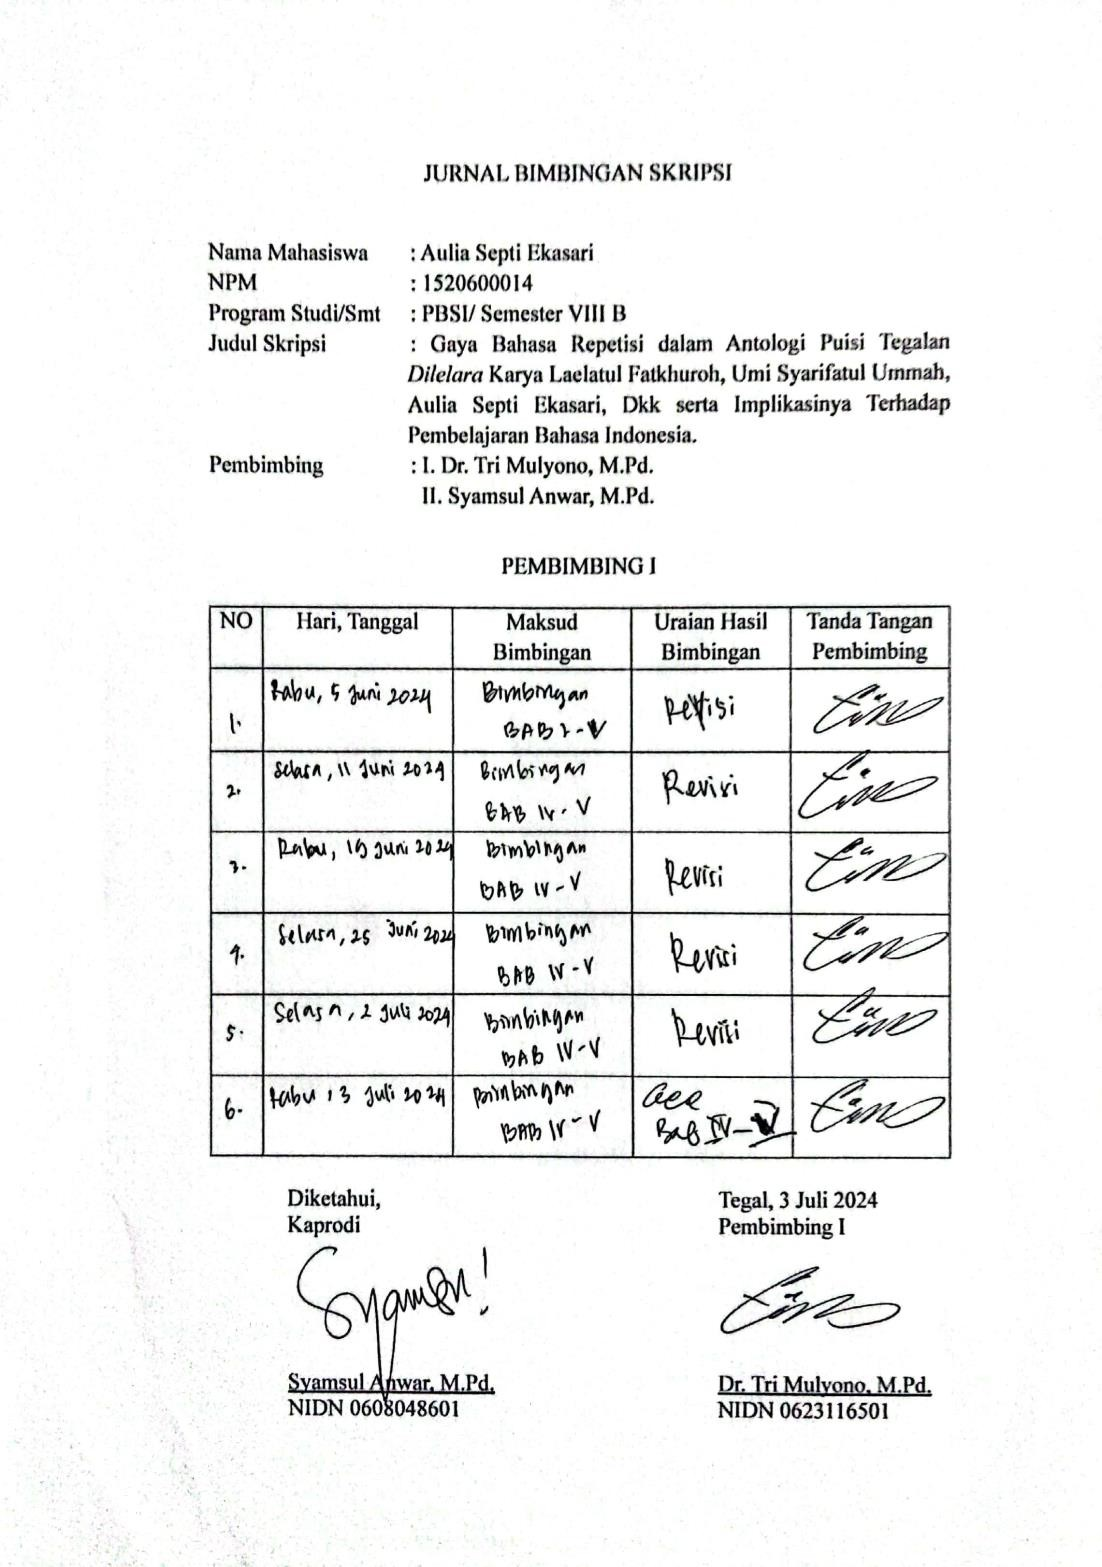 JURNAL BIMBINGAN SKRIPSI
Nama Mahasiswa : Aulia Septi Ekasari
NPM : 1520600014
Program Studi/Smt : PBSI/ Semester VIII B
Judul Skripsi : Gaya Bahasa Repetisi dalam Antologi Puisi Tegalan
Dilelara Karya Laelatul Fatkhuroh, Umi Syarifatul Ummah,
Aulia Septi Ekasari, Dkk serta Implikasinya Terhadap
Pembelajaran Bahasa Indonesia.
Pembimbing : I. Dr. Tri Mulyono, M.Pd.
II. Syamsul Anwar, M.Pd.
PEMBIMBING I
NO Hari, Tanggal Maksud Bimbingan Uraian Hasil Bimbingan Tanda Tangan Pembimbing
1. Rabu, 5 Juni 2024 Bimbingan BAB Revisi
2. Selasa, 11 Juni 2024 Bimbingan BAB IV-V Revisi
3. Rabu, 19 Juni 2024 Bimbingan BAB IV-V Revisi
4. Selasa, 25 Juni 2024 Bimbingan BAB IV-V Revisi
5. Selasa, 2 Juli 2024 Bimbingan BAB IV-V Revisi
6. Rabu, 3 Juli 2024 Bimbingan BAB IV-V acc Bab IV-V
Diketahui, Tegal, 3 Juli 2024
Kaprodi Pembimbing I
Syamsul Anwar, M.Pd. Dr. Tri Mulyono, M.Pd.
NIDN 0608048601 NIDN 0623116501